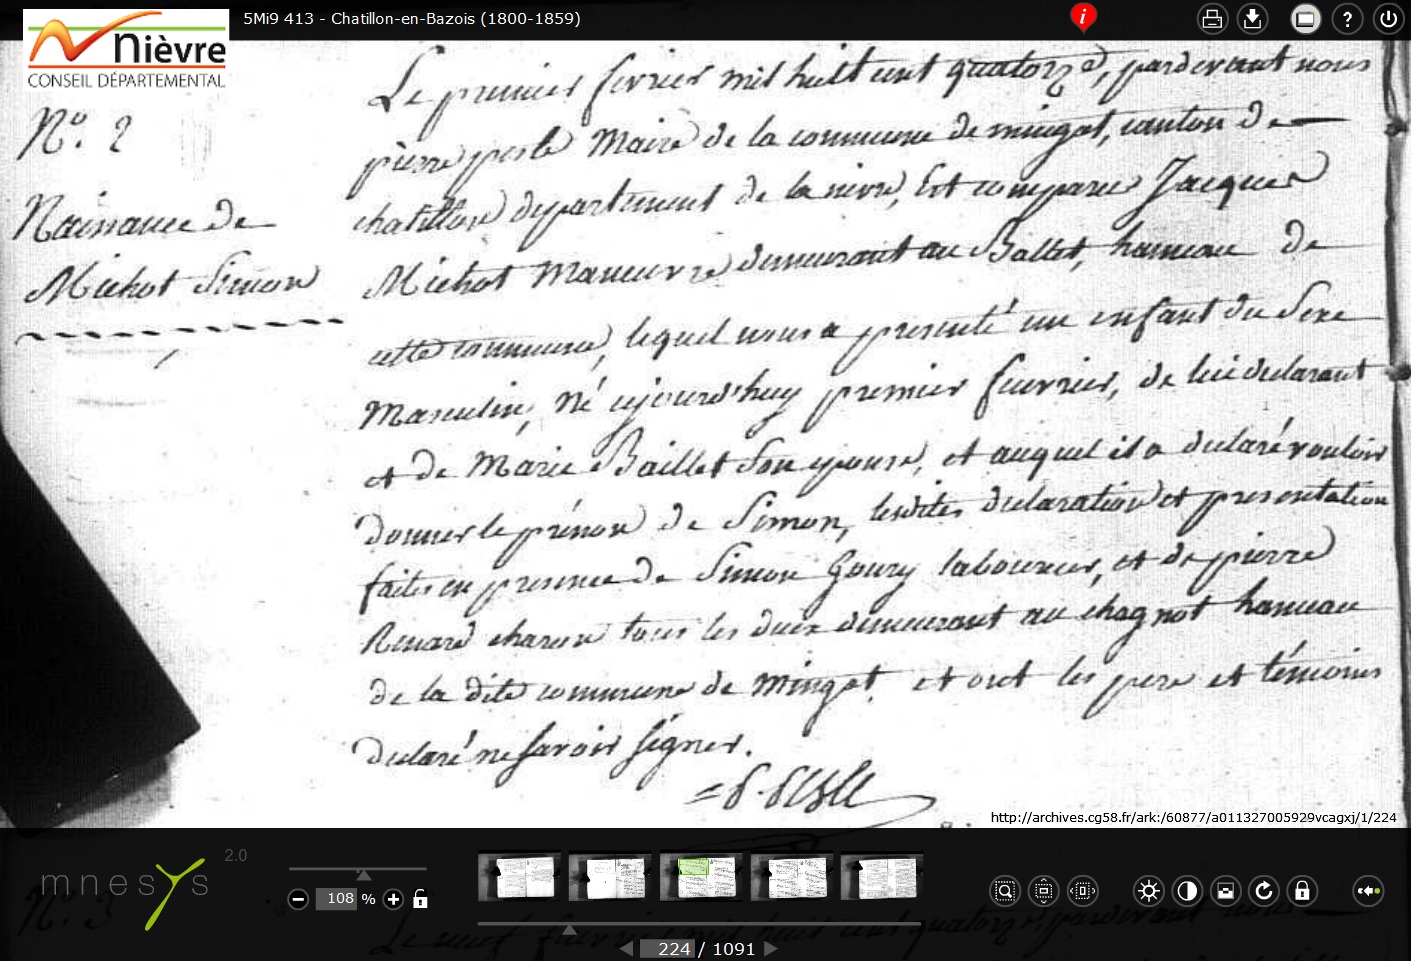 5Mi9 413 - Chatillon-en-Bazois (1800-1859)
Nièvre
CONSEIL DÉPARTEMENTAL
N.o 2
Naissance de
Michot Simon
Le premier fevrier mil huit cent quatorze, pardevant nous
pierre Maire de la commune de mingot, canton de
chatillon departement de la nievre, Est comparu Jacques
Michot Maneuvre demeurant au Baillet, hameau de
cette commune, lequel nous a presenté un enfant du Sexe
Masculin, né ajourd'huy premier fevrier, de lui declarant
et de Marie Baillet Son epouse, et auquel il a declaré vouloir
donner le prénon de Simon, lesdites declaration et presentation
faites en presence de Simon Goury laboureur, et de pierre
Renard charon tous les deux demeurant au chagnot hameau
de la dite commune de Mingot et ont les pere et témoins
declaré ne Savoir Signer.
http://archives.cg58.fr/ark:/60877/a011327005929vcagxj/1/224
mnesys 2.0
108 %
224 / 1091